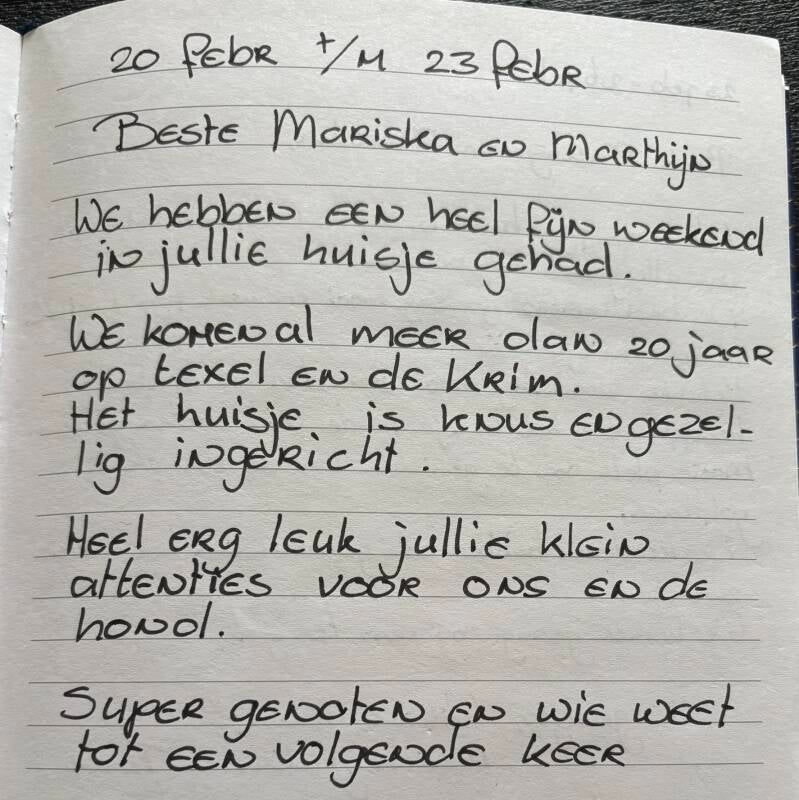 20 febr t/m 23 febr
Beste Mariska en Marthijn
We hebben een heel fijn weekend
in jullie huisje gehad.
We komen al meer dan 20 jaar
op texel en de Krim.
Het huisje is knus en gezel-
lig ingericht.
Heel erg leuk jullie klein
attenties voor ons en de
hond.
Super genoten en wie weet
tot een volgende keer